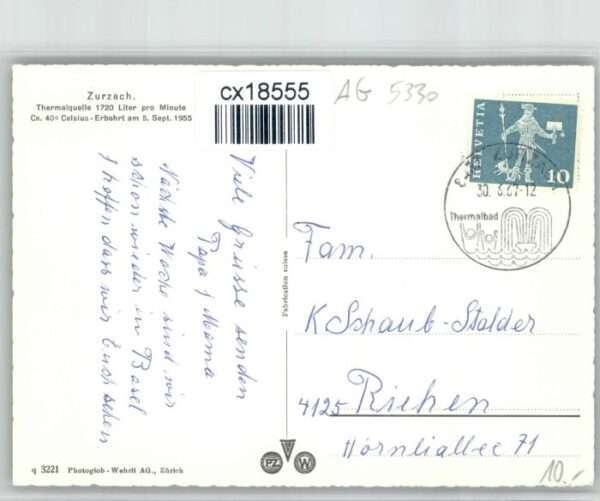 Zurzach.
Thermalquelle 1720 Liter pro Minute
Ca. 40° Celsius - Erbohrt am 5. Sept. 1955
cx18555
AG 5330
HELVETIA
10
30. 6.67-12
Thermalbad
Viele Grüsse senden
Papa & Mama
Nächste Woche sind wir
schon wieder in Basel
& hoffen dass wir Euch sehen
Fabrication suisse
Fam.
K Schaub-Stalder
4125 Riehen
Hörnliallee 71
q 3221 Photoglob-Wehrli AG., Zürich
PZ
V
W
10.-